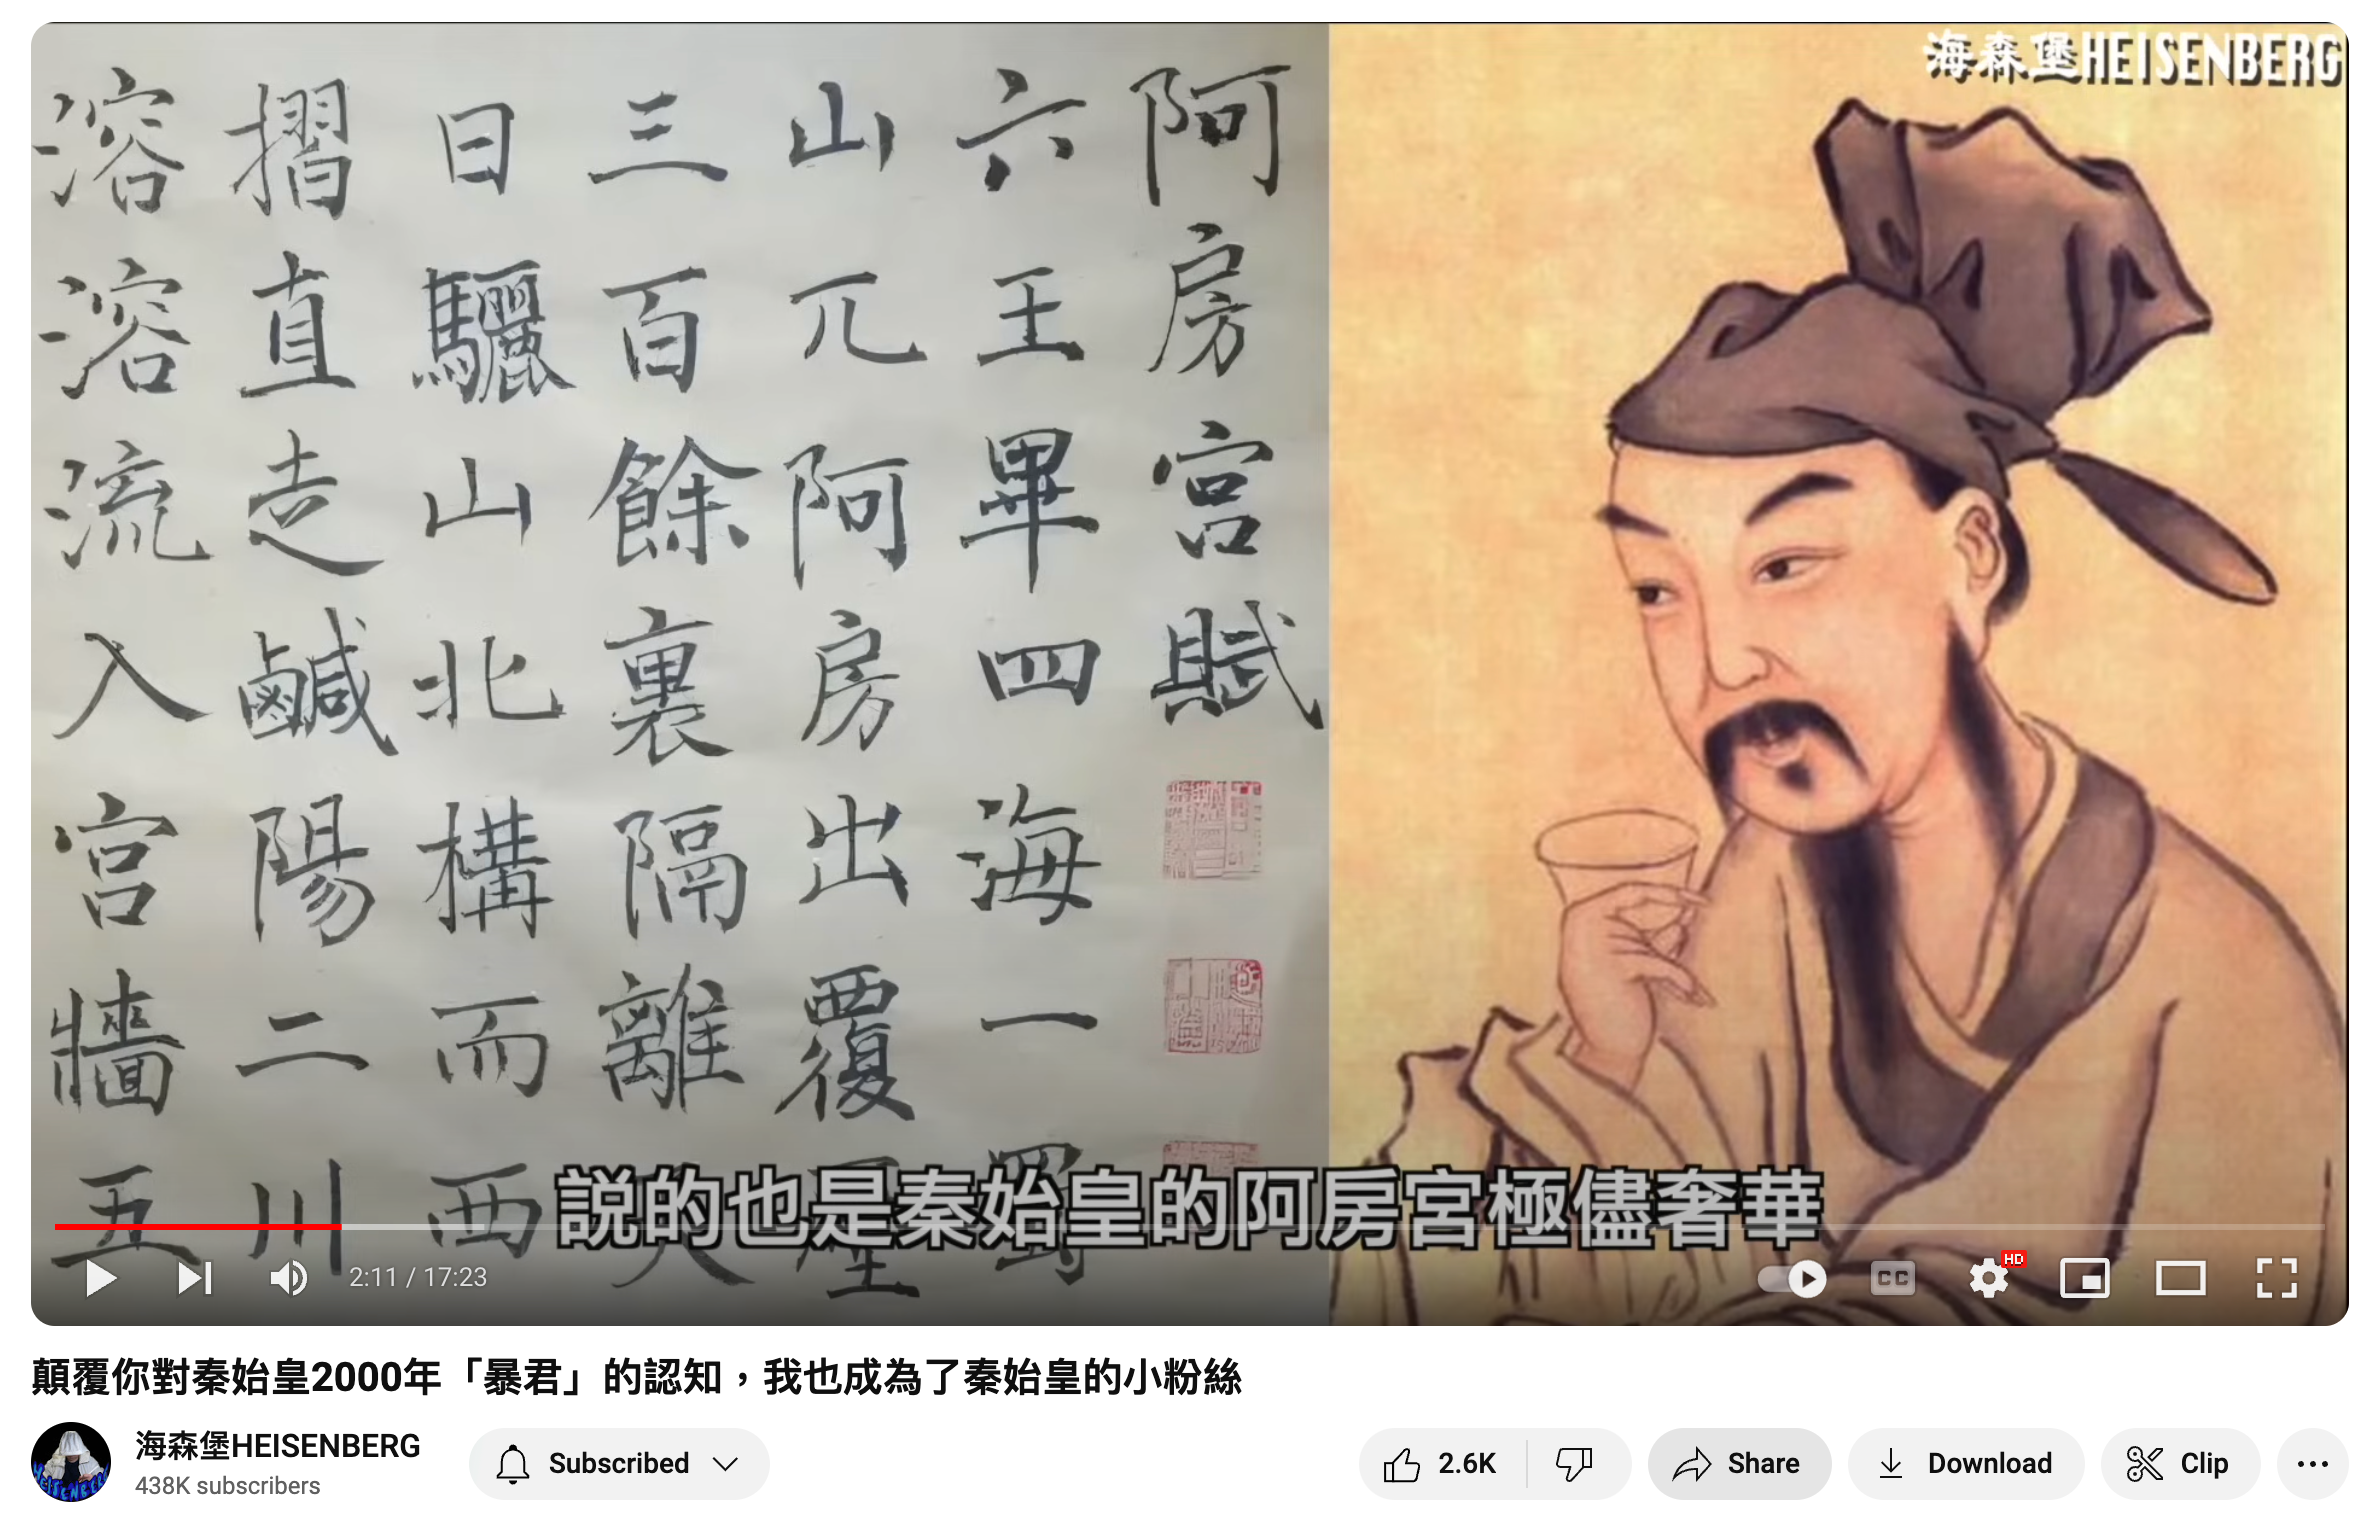 海森堡HEISENBERG
阿房宮賦
六王畢四海一蜀
山兀阿房出覆壓
三百餘裏隔離天
日驪山北構而西
摺直走鹹陽二川
溶溶流入宮牆五
説的也是秦始皇的阿房宮極儘奢華
2:11 / 17:23
CC
HD
顛覆你對秦始皇2000年「暴君」的認知，我也成為了秦始皇的小粉絲
海森堡HEISENBERG
438K subscribers
Subscribed
2.6K
Share
Download
Clip